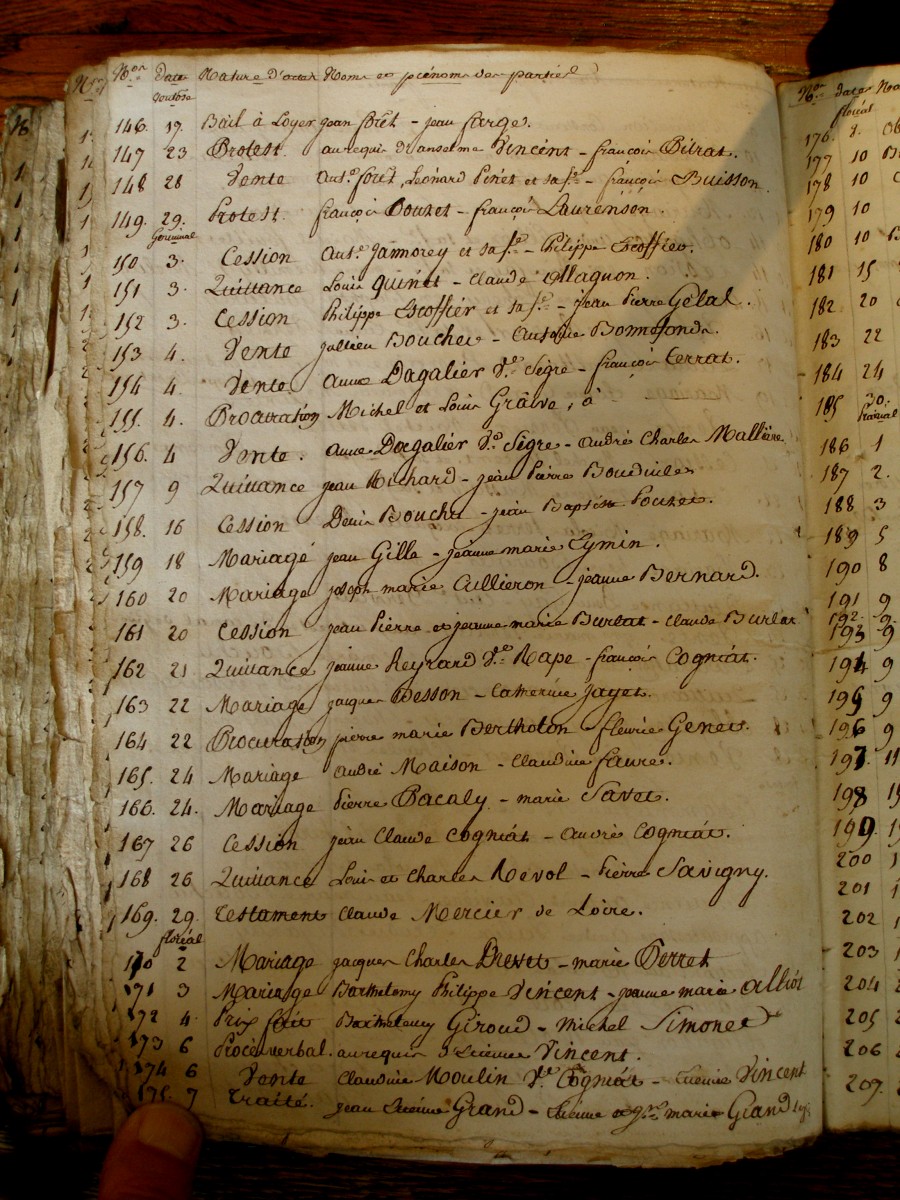 Nos Date Nature d'actes Noms et prénoms des parties
ventose
146. 17. Bail à Loyer jean forêt - jean farges.
147 23 Protest. au requis d'anselme Vincent - françois Pitrat.
148 28 Vente Ant.e forêt, Léonard Peret et sa f.e - françois Buisson.
149. 29. Protest. françois Douzet - françois Laurenson.
Germinal
150 3. Cession Ant.e et sa f.e - Philippe Escoffier.
151 3. Quittance Louis Quinet - Claude Magnon.
152 3. Cession Philippe Escoffier et sa f.e - jean Pierre Gelal.
153 4. Vente jullien Boucher - Antoine Bonnefonds.
154 4. Vente Anne Dagalier v.e Sègre - françois Terrat.
155. 4. Procuration Michel et Louis Graive, à
156. 4 Vente. Anne Dagalier v.e Sègre - andré Charles Mallière
157 9 Quittance jean Richard - jean Pierre
158. 16 Cession Denis Bouchu - jean Baptiste Pouzet.
159 18 Mariage jean Gille - jeanne marie Eymin.
160 20 Mariage joseph marie Cullieron - jeanne Bernard.
161 20 Cession jean Pierre et jeanne marie Burlat - Claude Burlat
162 21 Quittance jeanne Reynard v.e Rape - françois Cogniat.
163 22 Mariage jacques Besson - Catherine jayet.
164 22 Procuration pierre marie Bertholon - fleurie Genets.
165. 24 Mariage andré Maison - Claudine faure.
166. 24. Mariage Pierre Pacaly - marie Savet.
167 26 Cession jean Claude Cogniat - andrés Cogniat.
168 26 Quittance Louis et Charles Revol - Pierre Savigny.
169. 29. Testament Claude Mercier de Loire.
floréal
170 2 Mariage jacques Charles Drevet - marie Perret
171 3 Mariage Barthelemy Philippe Vincent - jeanne marie alliot
172 4. Prix fait Barthelemy Giroud - Michel Simonet
173 6 Procès verbal. au requis d'Etienne Vincent.
174 6 Vente Claudine Moulin v.e Cogniat - Etienne Vincent
175. 7 Traité. jean Etienne Grand - Etienne et marie Grand
Nos Date
floréal
176. 9.
177 10
178 10
179 10
180 10
181 15
182 20
183 22
184 24
185 30.
Prairial
186 1
187 2.
188 3
189 5
190 8
191 9
192 9.
193 9
194 9
195 9
196 9
197. 11
198
199.
200
201
202
203
204
205
206
207.